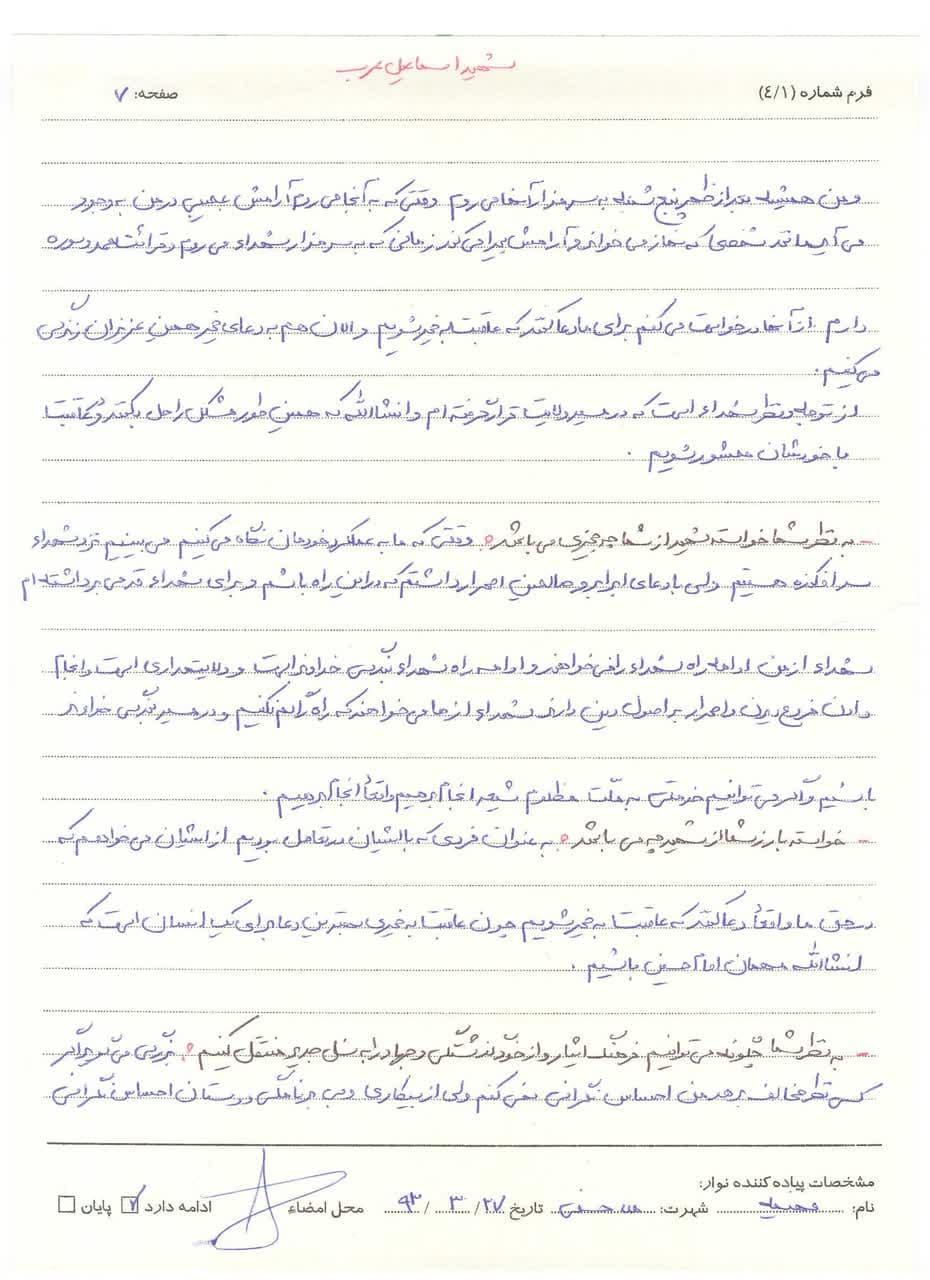 شهید اسماعیل عرب
فرم شماره (٤/١)
صفحه: ٧
و من همیشه بعد از ظهر پنج شنبه به سر مزار آنها می روم وقتی که به آنجا می روم آرامش عجیبی در من به وجود
می آید مانند شخصی که نماز می خواند و آرامش پیدا می کند زمانی که به سر مزار شهداء می روم و قرائت حمد و سوره
دارم از آنها درخواست می کنم برای ما دعا کنند که عاقبت به خیر شویم و الان هم به دعای خیر همین عزیزان زندگی
می کنیم.
از توجه و نظر شهداء است که در مسیر ولایت قرار گرفته ام و انشاالله که همین طور مشکل را حل بکنند و عاقبت
با خودشان محشور شویم .
- به نظر شما خواسته شهید از شما چه چیزی می باشد؟ وقتی که ما به عملکرد خودمان نگاه می کنیم می بینیم نزد شهداء
سرافکنده هستیم ولی با دعای ابرار و صالحین اصرار داشتم که در این راه باشم و برای شهداء قدمی برداشته ام
شهداء از من ادامه راه شهداء را می خواهند و ادامه راه شهداء بندگی خداوند است و ولایتمداری است و انجام
دادن فروع دین و اصرار بر اصول دین دارند شهداء از ما می خواهند که راه را گم نکنیم و در مسیر بندگی خداوند
باشیم و اگر می توانیم خدمتی به ملت مظلوم شیعه انجام بدهیم واقعاً انجام بدهیم .
- خواسته بارز شما از شهید چه می باشد؟ به عنوان فردی که با ایشان در تعامل بودیم از ایشان می خواهم که
در حق ما واقعاً دعا کنند که عاقبت به خیر شویم چون عاقبت به خیری بهترین دعا برای یک انسان است که
انشاالله مهمان امام حسین باشیم .
- به نظر شما چگونه می توانیم فرهنگ ایثار و از خودگذشتگی و جهاد را به نسل جدید منتقل کنیم؟ بزرگی می گوید اگر
کسی نظر مخالف بدهد من احساس نگرانی نمی کنم ولی از بیکاری و بی برنامگی دوستان احساس نگرانی
مشخصات پیاده کننده نوار:
نام: شهرت: تاریخ ٢٧ / ٣ / ٩٣ محل امضاء ادامه دارد پایان